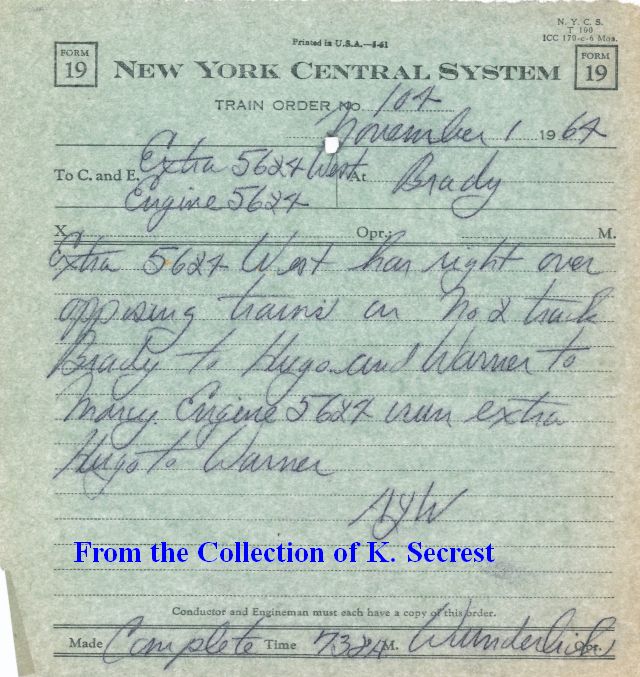 N. Y. C. S.
T 190
ICC 170-c-6 Mos.
Printed in U.S.A.—5-61
FORM 19 NEW YORK CENTRAL SYSTEM FORM 19
TRAIN ORDER No. 104
November 1 1964
To C. and E. Extra 5624 West At Brady
Engine 5624
X Opr.; M.
Extra 5624 West has right over
opposing trains on No 2 track
Brady to Hugo and Warner to
Marcy Engine 5624 run extra
Hugo to Warner
From the Collection of K. Secrest
Conductor and Engineman must each have a copy of this order.
Made Complete Time 732A M. Wunderlich Opr.